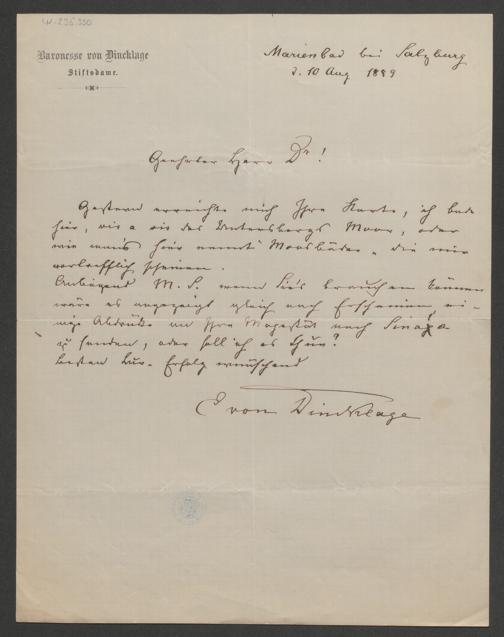 I.N. 235.550
Baronesse von Dincklage
Stiftsdame.
Marienbad bei Salzburg
d. 10 Aug 1889
Geehrter Herr Dr!
Gestern erreichte mich Ihre Karte, ich bade
hier, vis a vis des Untersbergs Moor, oder
wie man's hier nennt Moosbäder, die mir
vortrefflich scheinen.
Anliegend M. S. wenn Sie's brauchen können
wäre es angezeigt gleich nach Erscheinen ei-
nige Abdrücke an Ihre Majestät nach Sinaia
zu senden, oder soll ich es thun?
besten Kur-Erfolg wünschend
E von Dincklage